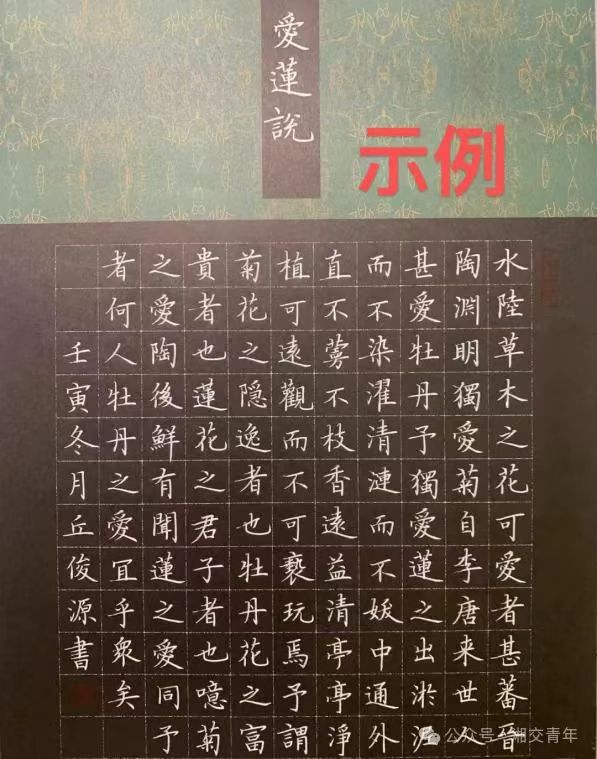 愛蓮說
示例
水陸草木之花可愛者甚蕃晉
陶淵明獨愛菊自李唐来世人
甚愛牡丹予獨愛蓮之出淤泥
而不染濯清漣而不妖中通外
直不蔓不枝香遠益清亭亭淨
植可遠觀而不可褻玩焉予謂
菊花之隐逸者也牡丹花之富
貴者也蓮花之君子者也噫菊
之愛陶後鮮有聞蓮之愛同予
者何人牡丹之愛冝乎衆矣
壬寅冬月丘俊源書
公众号·湘交青年